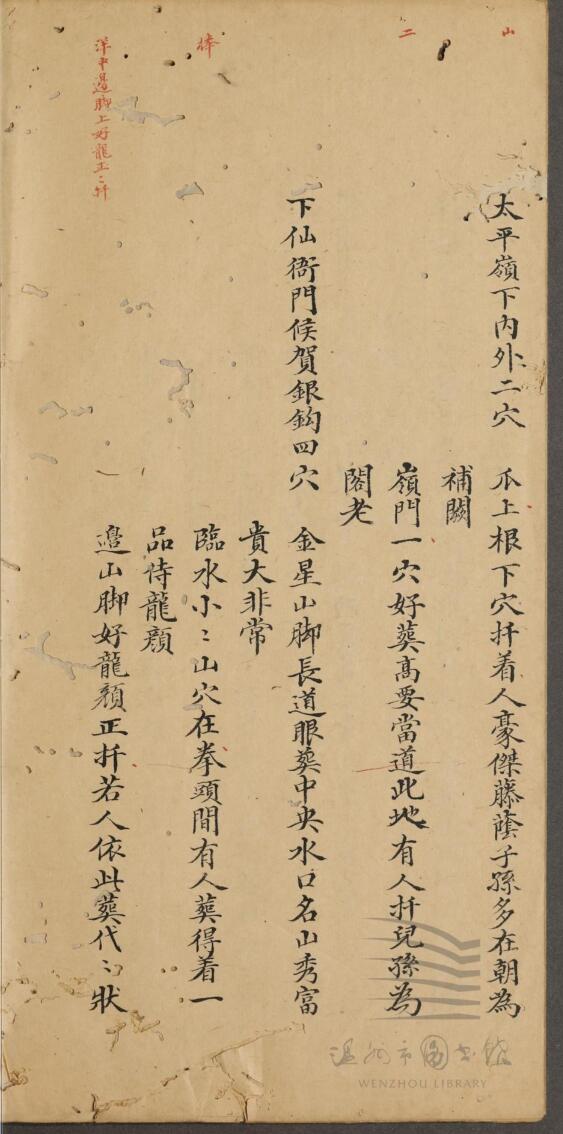 山
太平嶺下內外二穴 爪上根下穴扦着人豪傑藤蔭子孫多在朝為
補闕
二
嶺門一穴好葬高要當道此地有人扦兒孫為
閣老
下仙衙門候賀銀鈎四穴 金星山脚長道眼葬中央水口名山秀富
貴大非常
棒
臨水小〻山穴在拳頭間有人葬得着一
品侍龍顏
洋中邉脚上好龍正〻扦
邉山脚好龍顏正扦若人依此葬代〻狀
温州市图书馆
WENZHOU LIBRARY